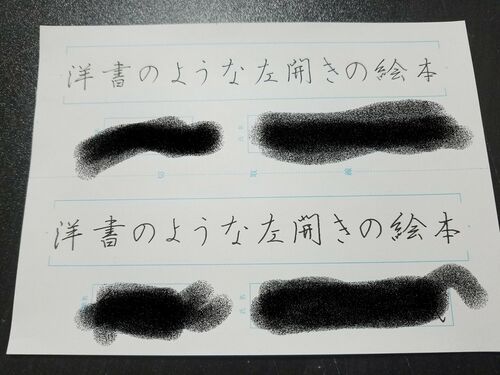 洋書のような左開きの絵本
洋書のような左開きの絵本